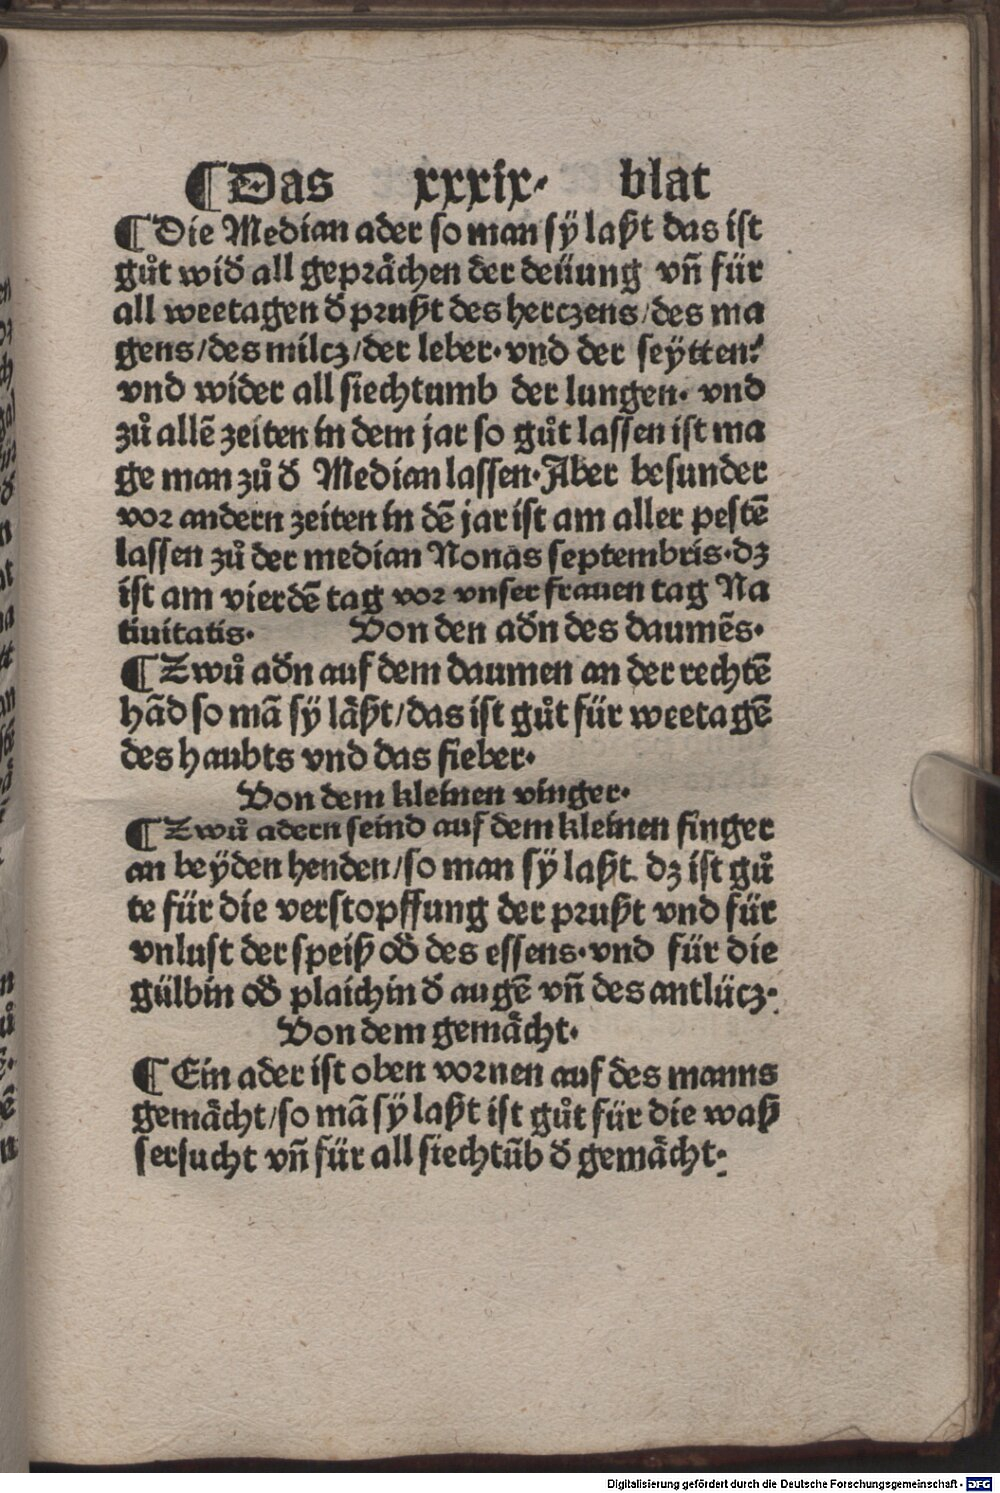 ¶Das xxxix· blat
¶Die Median ader so man sÿ laßt das ist
gůt wid̄ all geprächen der deüung vn̄ für
all weetagen d̄ prußt des herczens/des ma
gens/des milcz/der leber·vnd der seÿtten·
vnd wider all siechtumb der lungen· vnd
zů allē zeiten in dem jar so gůt lassen ist ma
ge man zů d̄ Median lassen·Aber besunder
vor andern zeiten in dē jar ist am aller pestē
lassen zů der median Nonas septembris·dz
ist am vierdē tag vor vnser frauen tag Na
tiuitatis· Von den ad̄n des daumēs·
¶Zwů ad̄n auf dem daumen an der rechtē
hād so mā sÿ läßt/das ist gůt für weetagē
des haubts vnd das fieber·
Von dem kleinen vinger·
¶Zwů adern seind auf dem kleinen finger
an beÿden henden/so man sÿ laßt dz ist gů
te für die verstopffung der prußt vnd für
vnlust der speiß od̄ des essens·vnd für die
gülbin od̄ plaichin d̄ augē vn̄ des antlücz·
Von dem gemächt·
¶Ein ader ist oben vornen auf des manns
gemächt/so mā sÿ laßt ist gůt für die waß
sersucht vn̄ für all siechtūb d̄ gemächt·
Digitalisierung gefördert durch die Deutsche Forschungsgemeinschaft - DFG